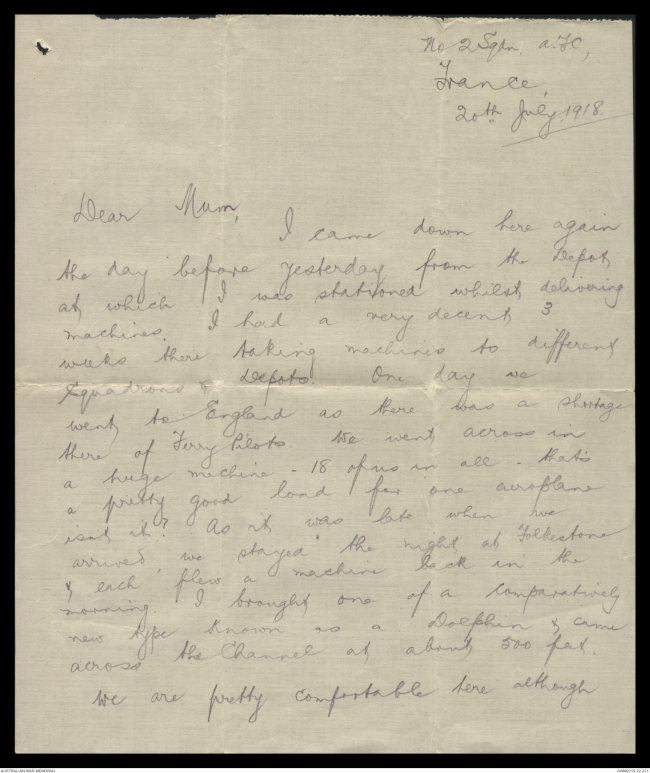 No 2 Sqdn. A.F.C,
France,
20th July, 1918.
Dear Mum,
I came down here again
the day before yesterday from the Depot
at which I was stationed whilst delivering
machines. I had a very decent 3
weeks there taking machines to different
Squadrons & Depots. One day we
went to England as there was a shortage
there of Ferry Pilots. We went across in
a huge machine - 18 of us in all - that's
a pretty good load for one aeroplane
isnt it? As it was late when we
arrived, we stayed the night at Folkestone
& each flew a machine back in the
morning. I brought one of a comparatively
new type known as a Dolphin & came
across the Channel at about 500 feet.
We are pretty comfortable here although
AUSTRALIAN WAR MEMORIAL